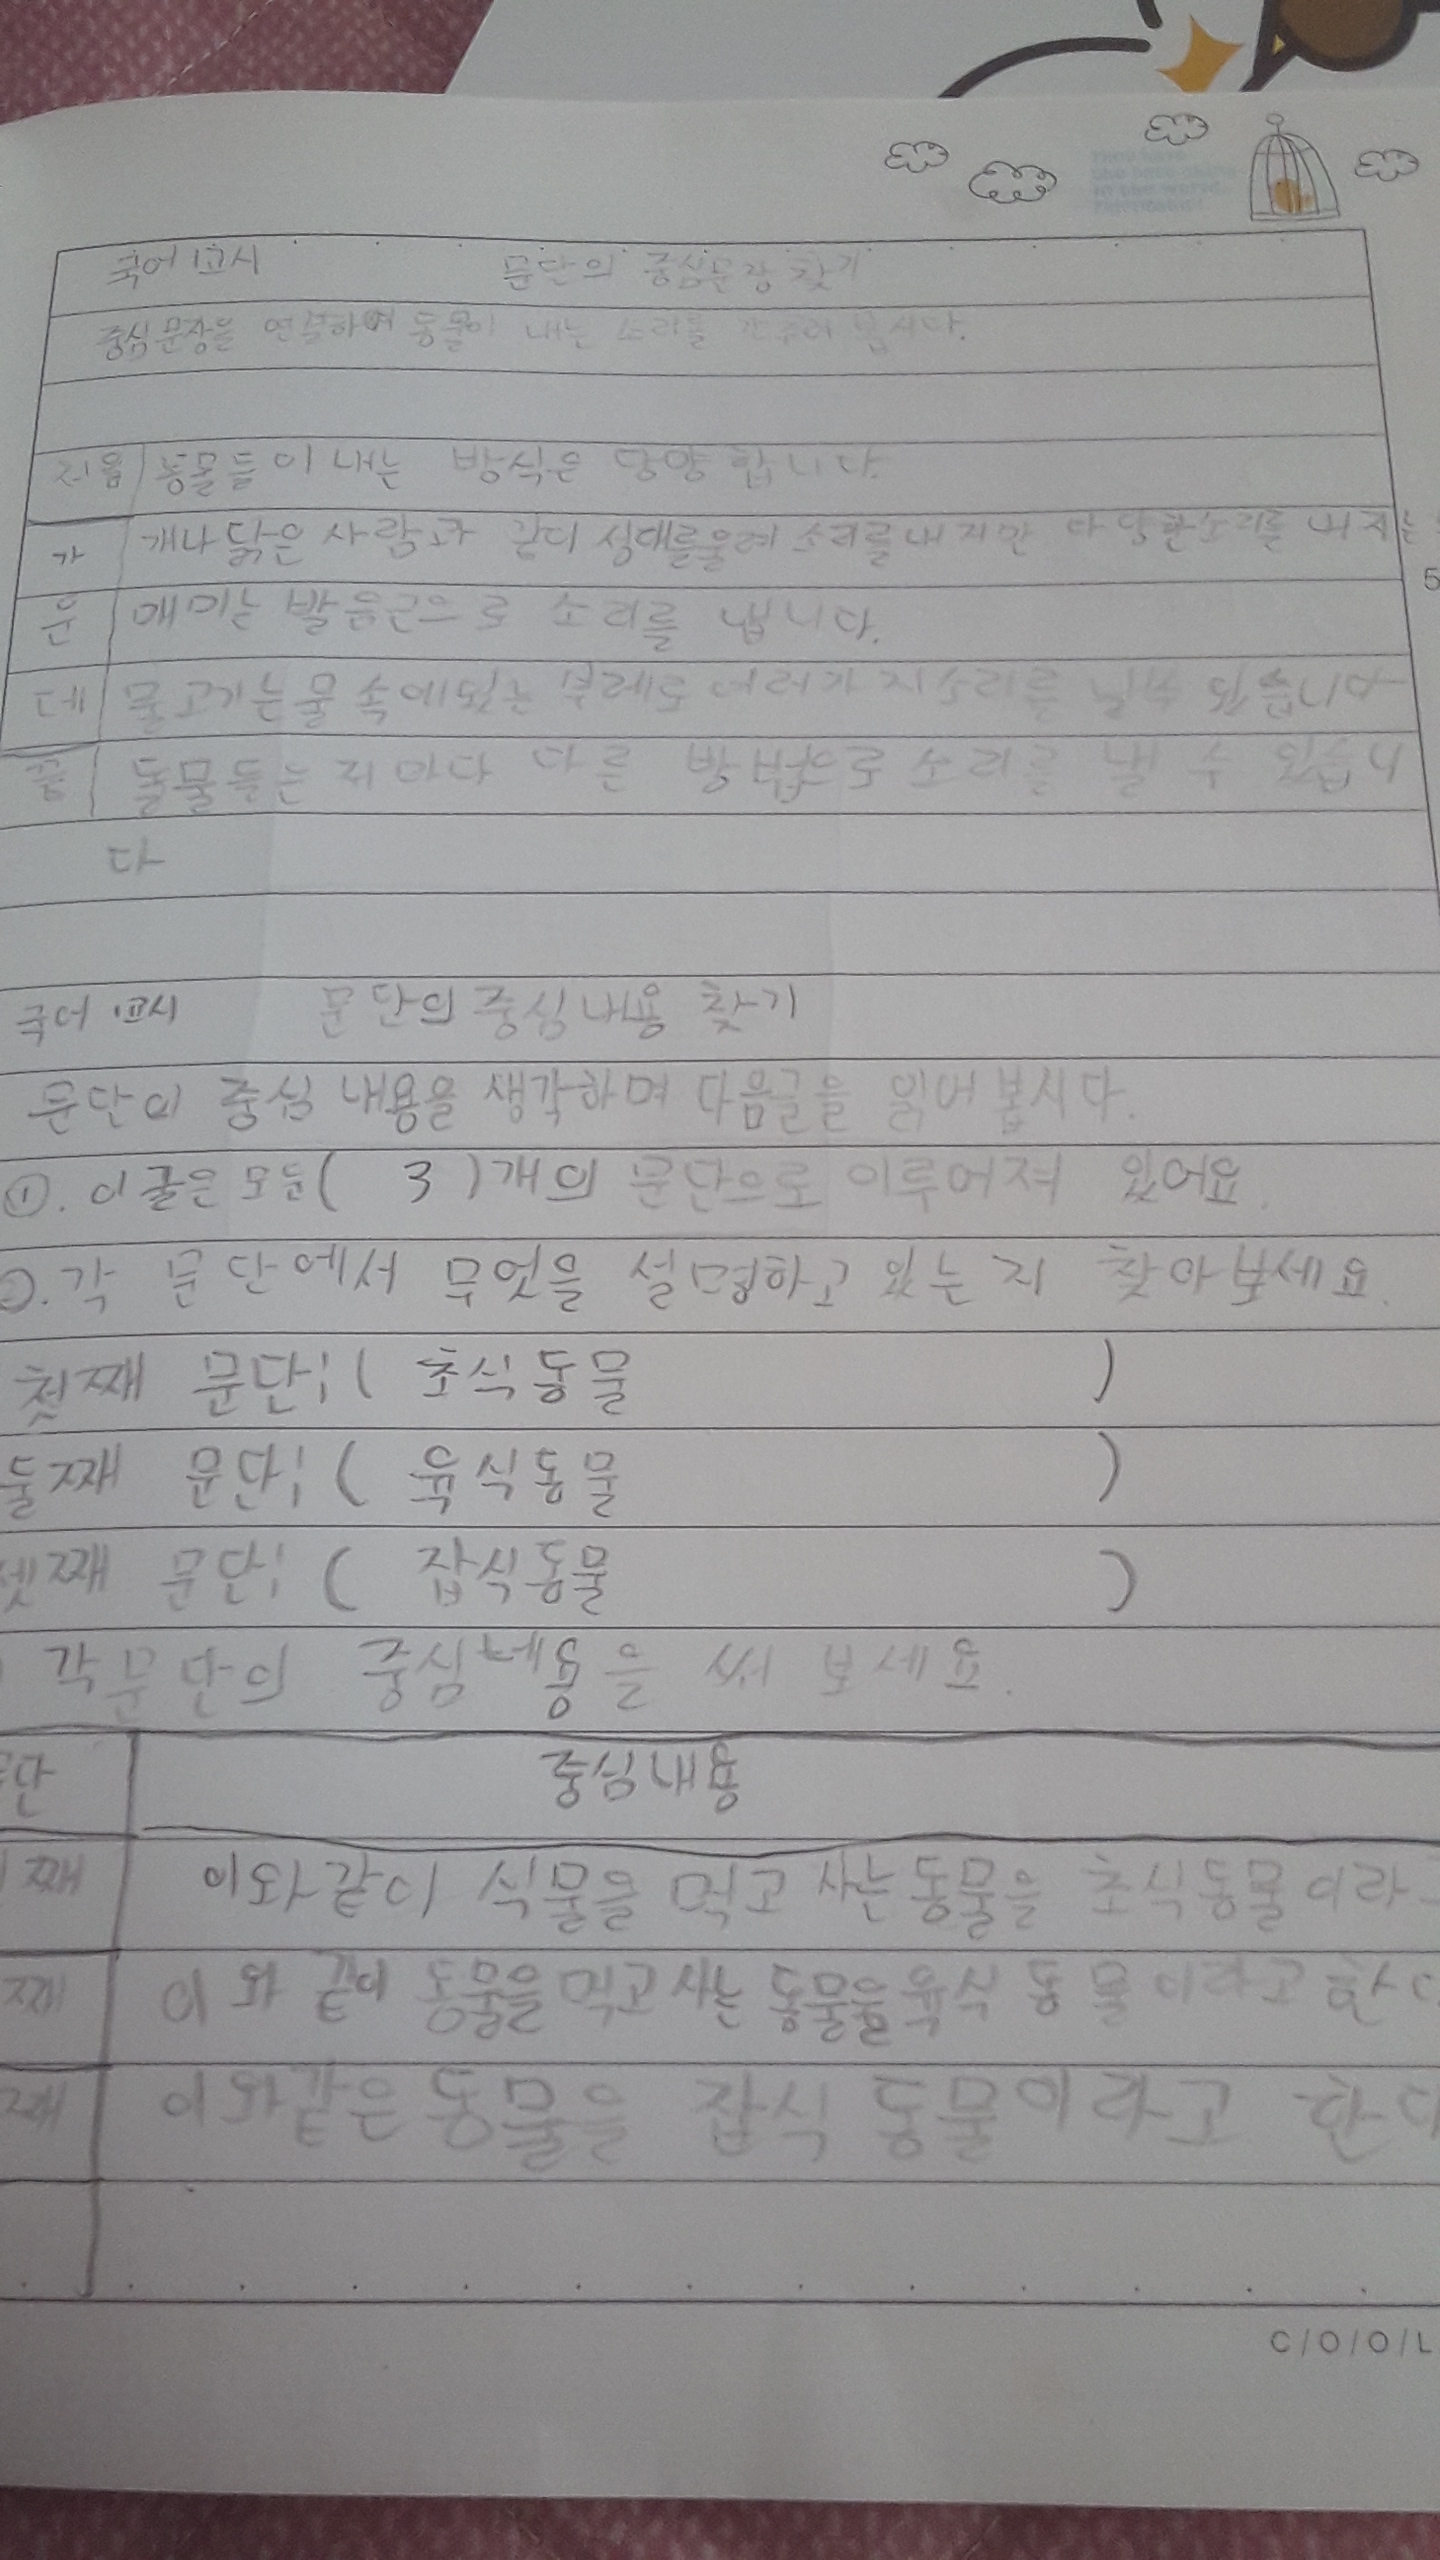 국어 1교시 문단의 중심문장 찾기
중심문장을 연결하며 동물이 내는 소리를 간추려 봅시다.
처음 동물들이 내는 방식은 당양합니다.
가 개나 닭은 사람과 같디 성대를울려 소리를내지만 다양한소리를 내지는
운 매미는 발음근으로 소리를 냅니다.
데 물고기는물속에있는 부레로 여러가지소리를 낼수 있습니다
끝 돌물들은 저마다 다른 방법으로 소리를 낼 수 있습니
다
국어 1교시 문단의 중심내용 찾기
문단의 중심 내용을 생각하며 다음글을 읽어봅시다.
①. 이글은 모두( 3 )개의 문단으로 이루어져 있어요.
②. 각 문단에서 무엇을 설명하고 있는지 찾아보세요.
첫째 문단:( 초식동물 )
둘째 문단:( 육식동물 )
셋째 문단:( 잡식동물 )
각문단의 중심내용을 써 보세요.
문단 중심내용
째 이와같이 식물을 먹고 사는동물을 초식동물이라
째 이와 같이 동물을먹고사는 동물을육식 동물이라고 한다
째 이와같은 동물을 잡식 동물이라고 한다
C/O/O/L